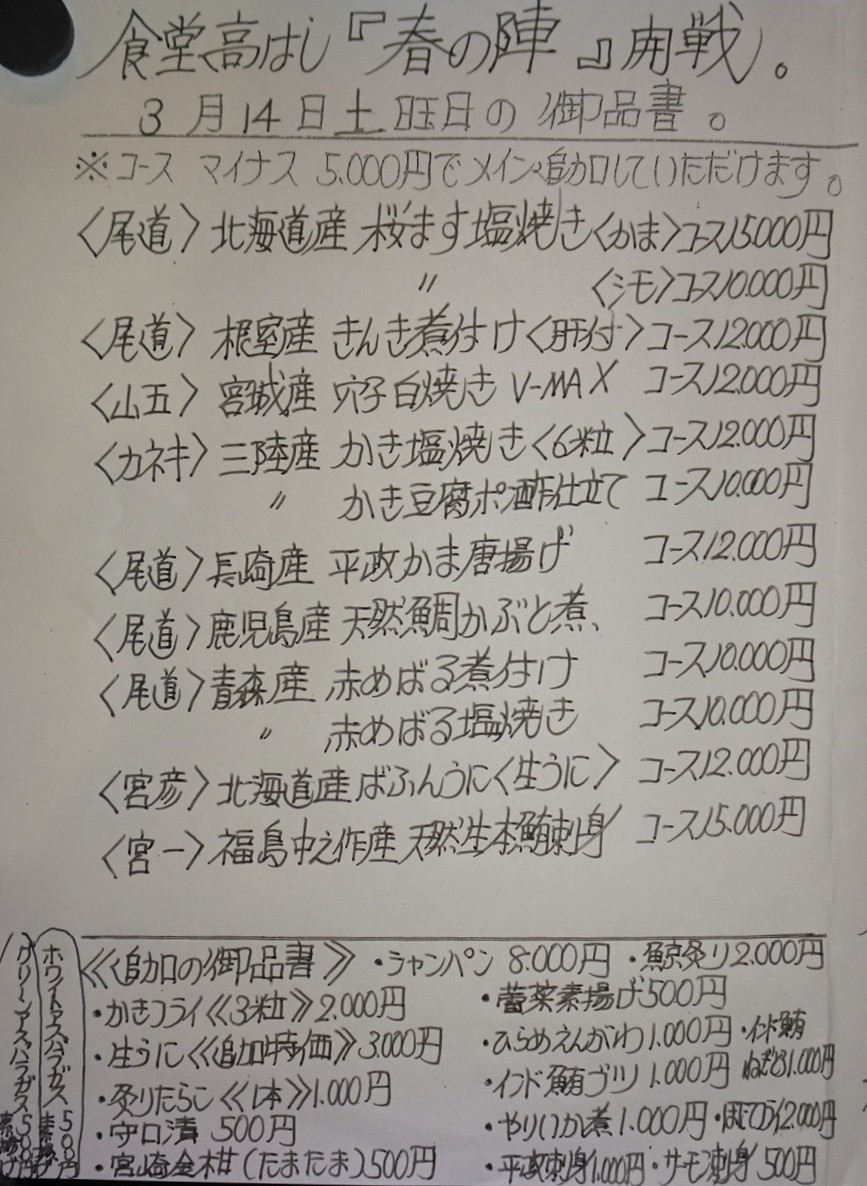 食堂高はし『春の陣』開戦。
3月14日土曜日の御品書。
※コース マイナス 5.000円でメイン追加していただけます。
〈尾道〉北海道産 桜ます塩焼き〈かま〉コース15.000円
〃 〈シモ〉コース10.000円
〈尾道〉根室産 きんき煮付け〈肝付〉コース12.000円
〈山五〉宮城産 穴子白焼き V-MAX コース12.000円
〈カネキ〉三陸産 かき塩焼き〈6粒〉コース12.000円
〃 かき豆腐ポン酢仕立て コース10.000円
〈尾道〉長崎産 平政かま唐揚げ コース12.000円
〈尾道〉鹿児島産 天然鯛かぶと煮、 コース10.000円
〈尾道〉青森産 赤めばる煮付け コース10.000円
〃 赤めばる塩焼き コース10.000円
〈宮彦〉北海道産ばふんうに〈生うに〉 コース12.000円
〈宮一〉福島中之作産天然生本鮪刺身 コース15.000円
《追加の御品書》・シャンパン 8.000円 ・鯨炙り2.000円
・かきフライ《3粒》2.000円
・生うに《追加特価》3.000円
・炙りたらこ《1本》1.000円
・守口漬 500円
・宮崎金柑(たまたま)500円
・蕾菜素揚げ500円
・ひらめえんがわ1.000円・インド鮪
ねぎとろ1.000円
・インド鮪ブツ 1.000円
・やりいか煮1.000円・ほたてフライ2.000円
・平政刺身1.000円・サーモン刺身500円
ホワイトアスパラガス
素揚げ500円
グリーンアスパラガス
素揚げ500円